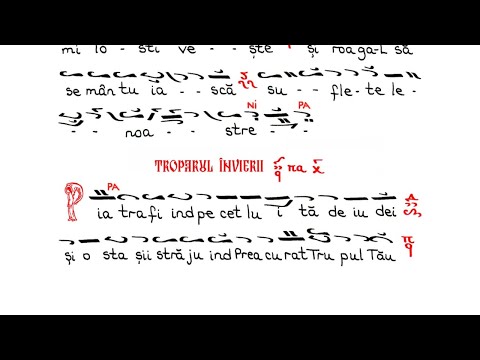 mi lo - sti ve - - ște și roaga-L să
se mân tu ia - - scă su - - fle - te le -
Ni PA
- - noa - - stre - - -
TROPARUL ÎNVIERII πα
PA
P ia tra fi ind pe cet lu i tă de iu dei
și o sta șii stră ju ind Prea cu rat Tru pul Tău